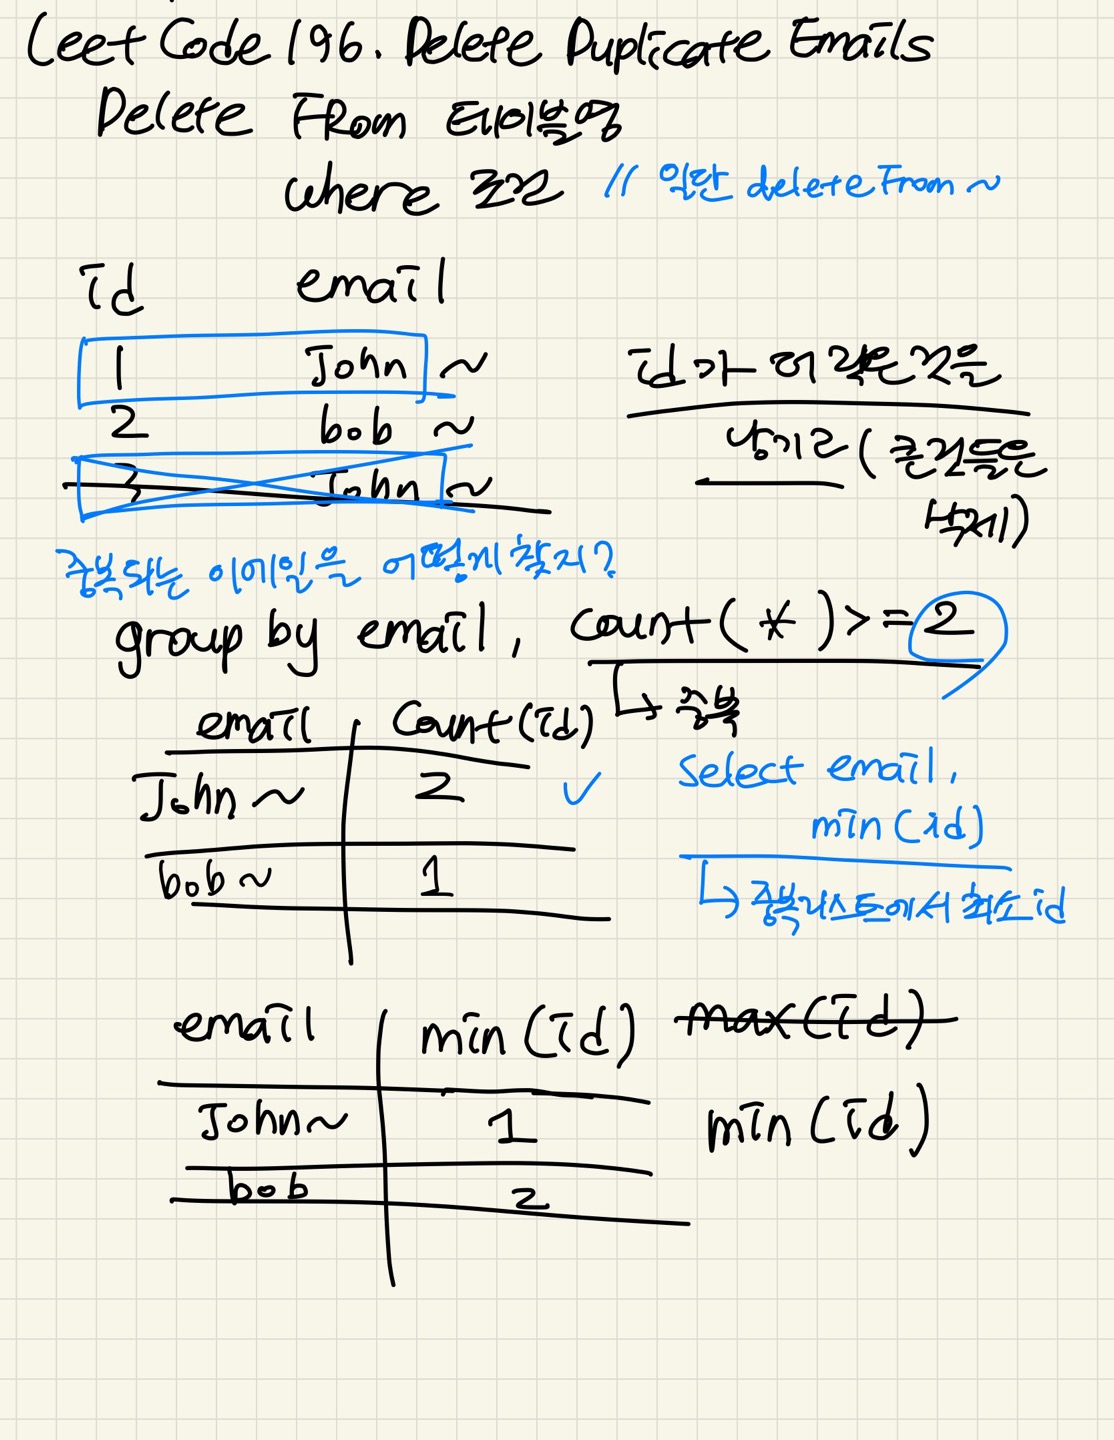 Leet Code 196. Delete Duplicate Emails
Delete From 테이블명
where 조건 // 일단 delete From ~
id email
1 John ~
2 bob ~
3 John ~
id가 더 작은것을
남기고 (큰것들은
삭제)
중복되는 이메일을 어떻게 찾지?
group by email, count(*) >= 2
↳ 중복
email Count(id)
John ~ 2 ✓
bob ~ 1
Select email,
min(id)
↳ 중복리스트에서 최소 id
email min(id) max(id)
John~ 1 min(id)
bob 2